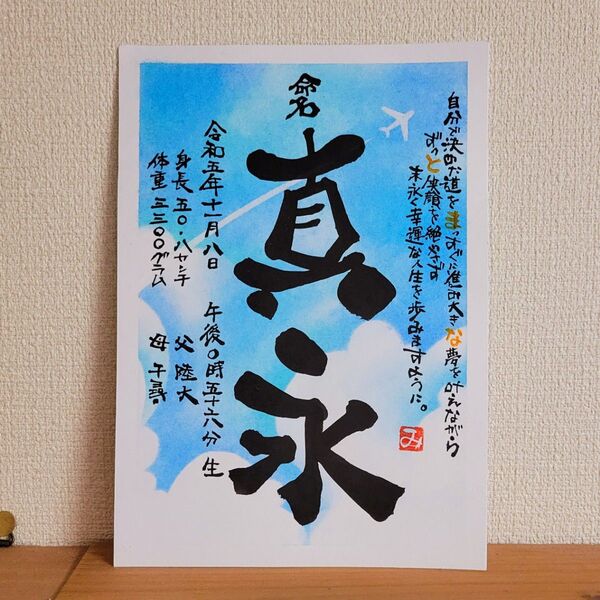 自分で決めた道をまっすぐに進み大きな夢を叶えながら
ずっと笑顔を絶やさず
末永く幸運な人生を歩みますように。
み
命名
真永
令和五年十一月八日 午後〇時五十六分 生
身長 五〇・八センチ 父 陸大
体重 三三〇〇グラム 母 千尋